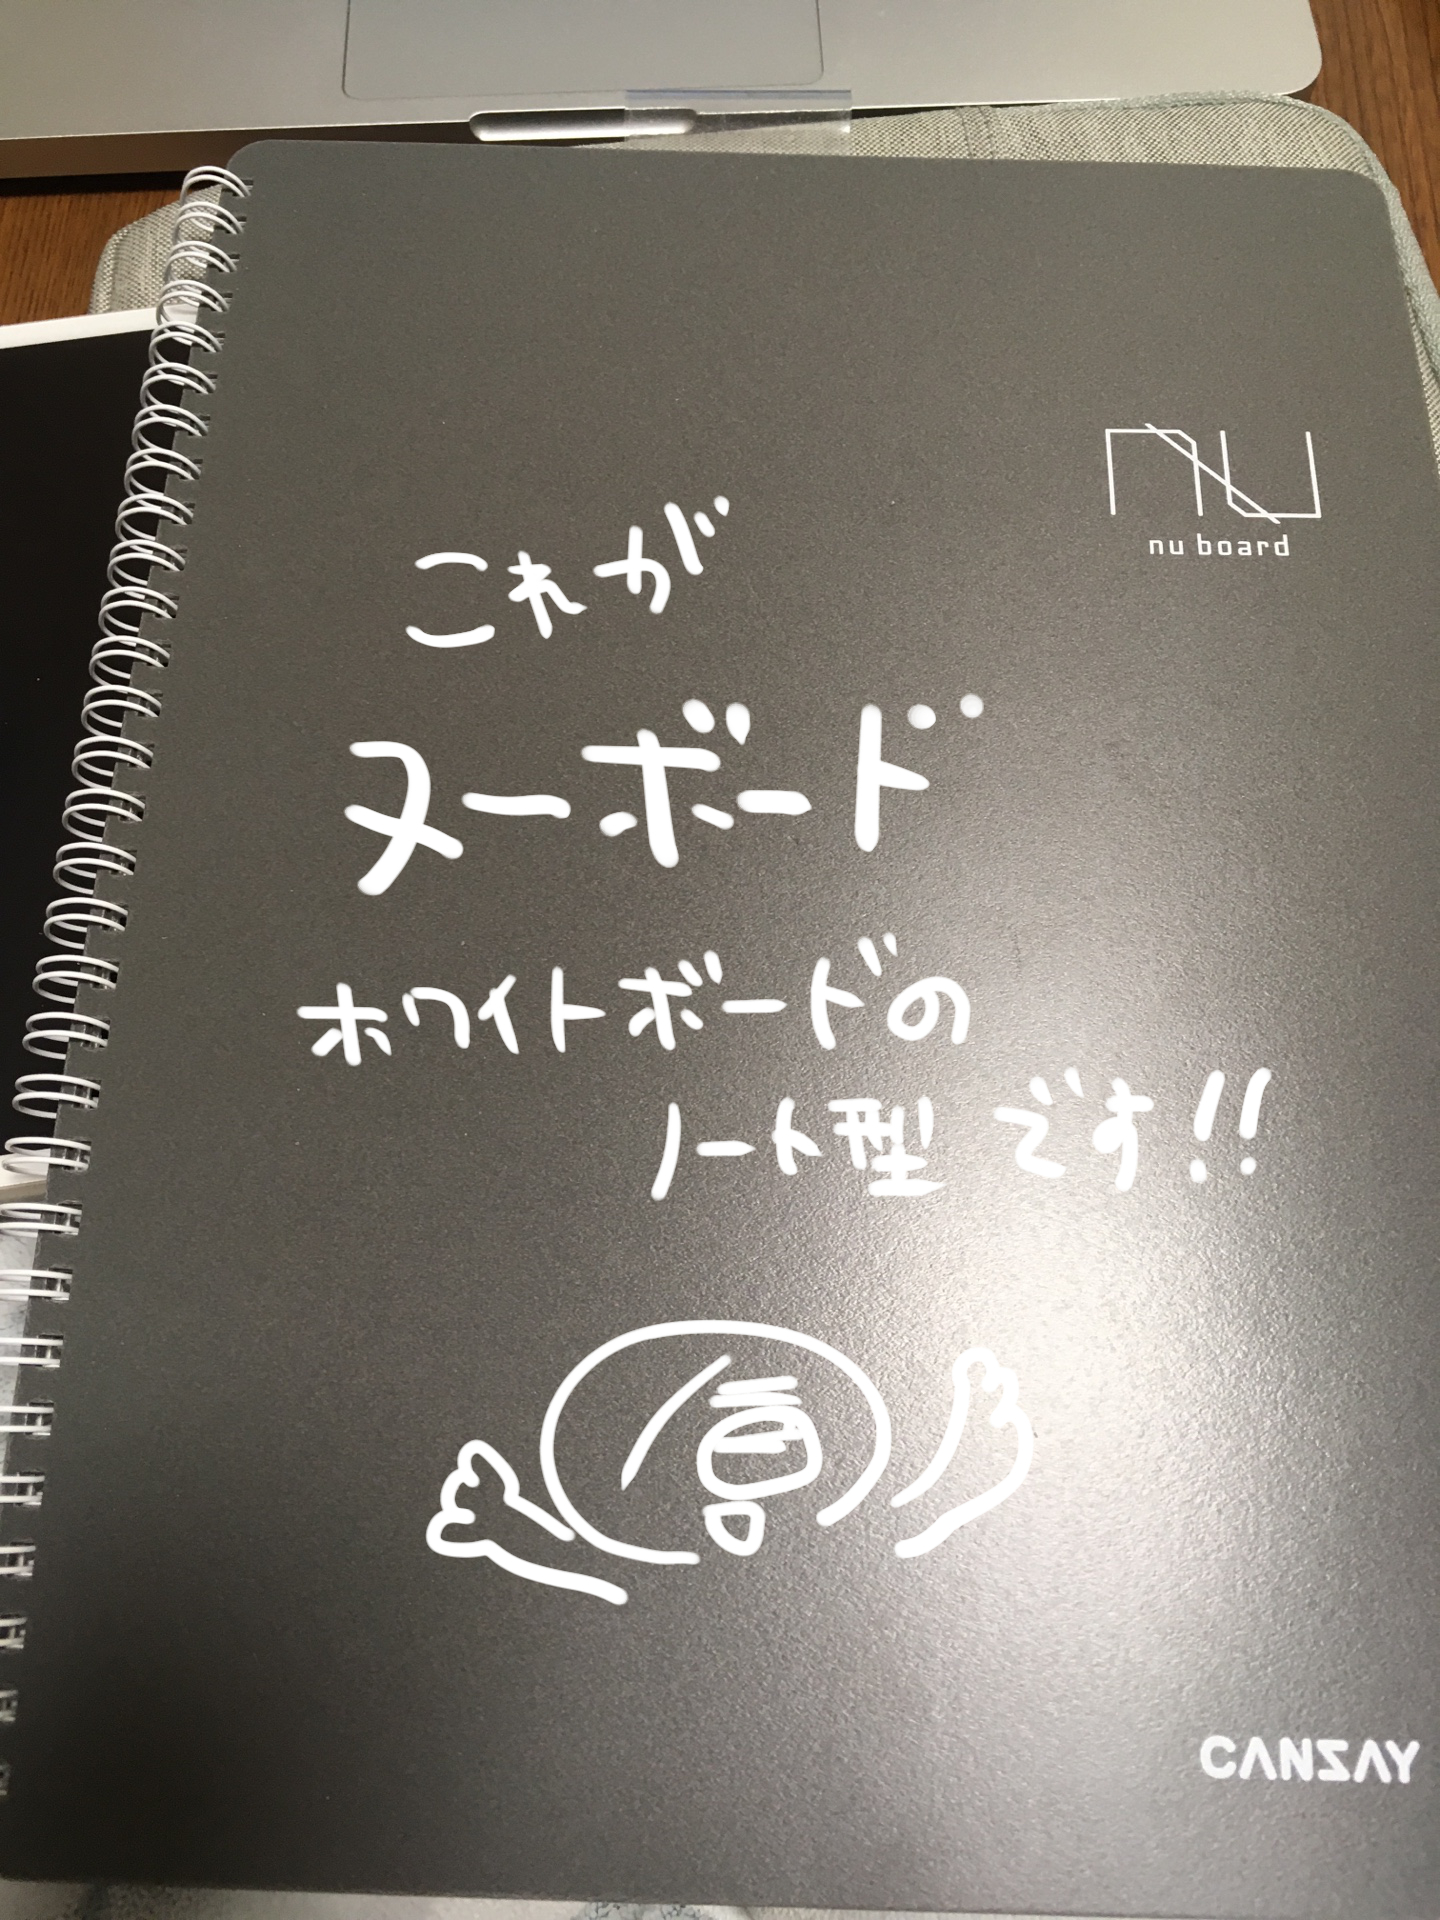 nu
nu board
これが
ヌーボード
ホワイトボードの
ノート型です!!
CANSAY